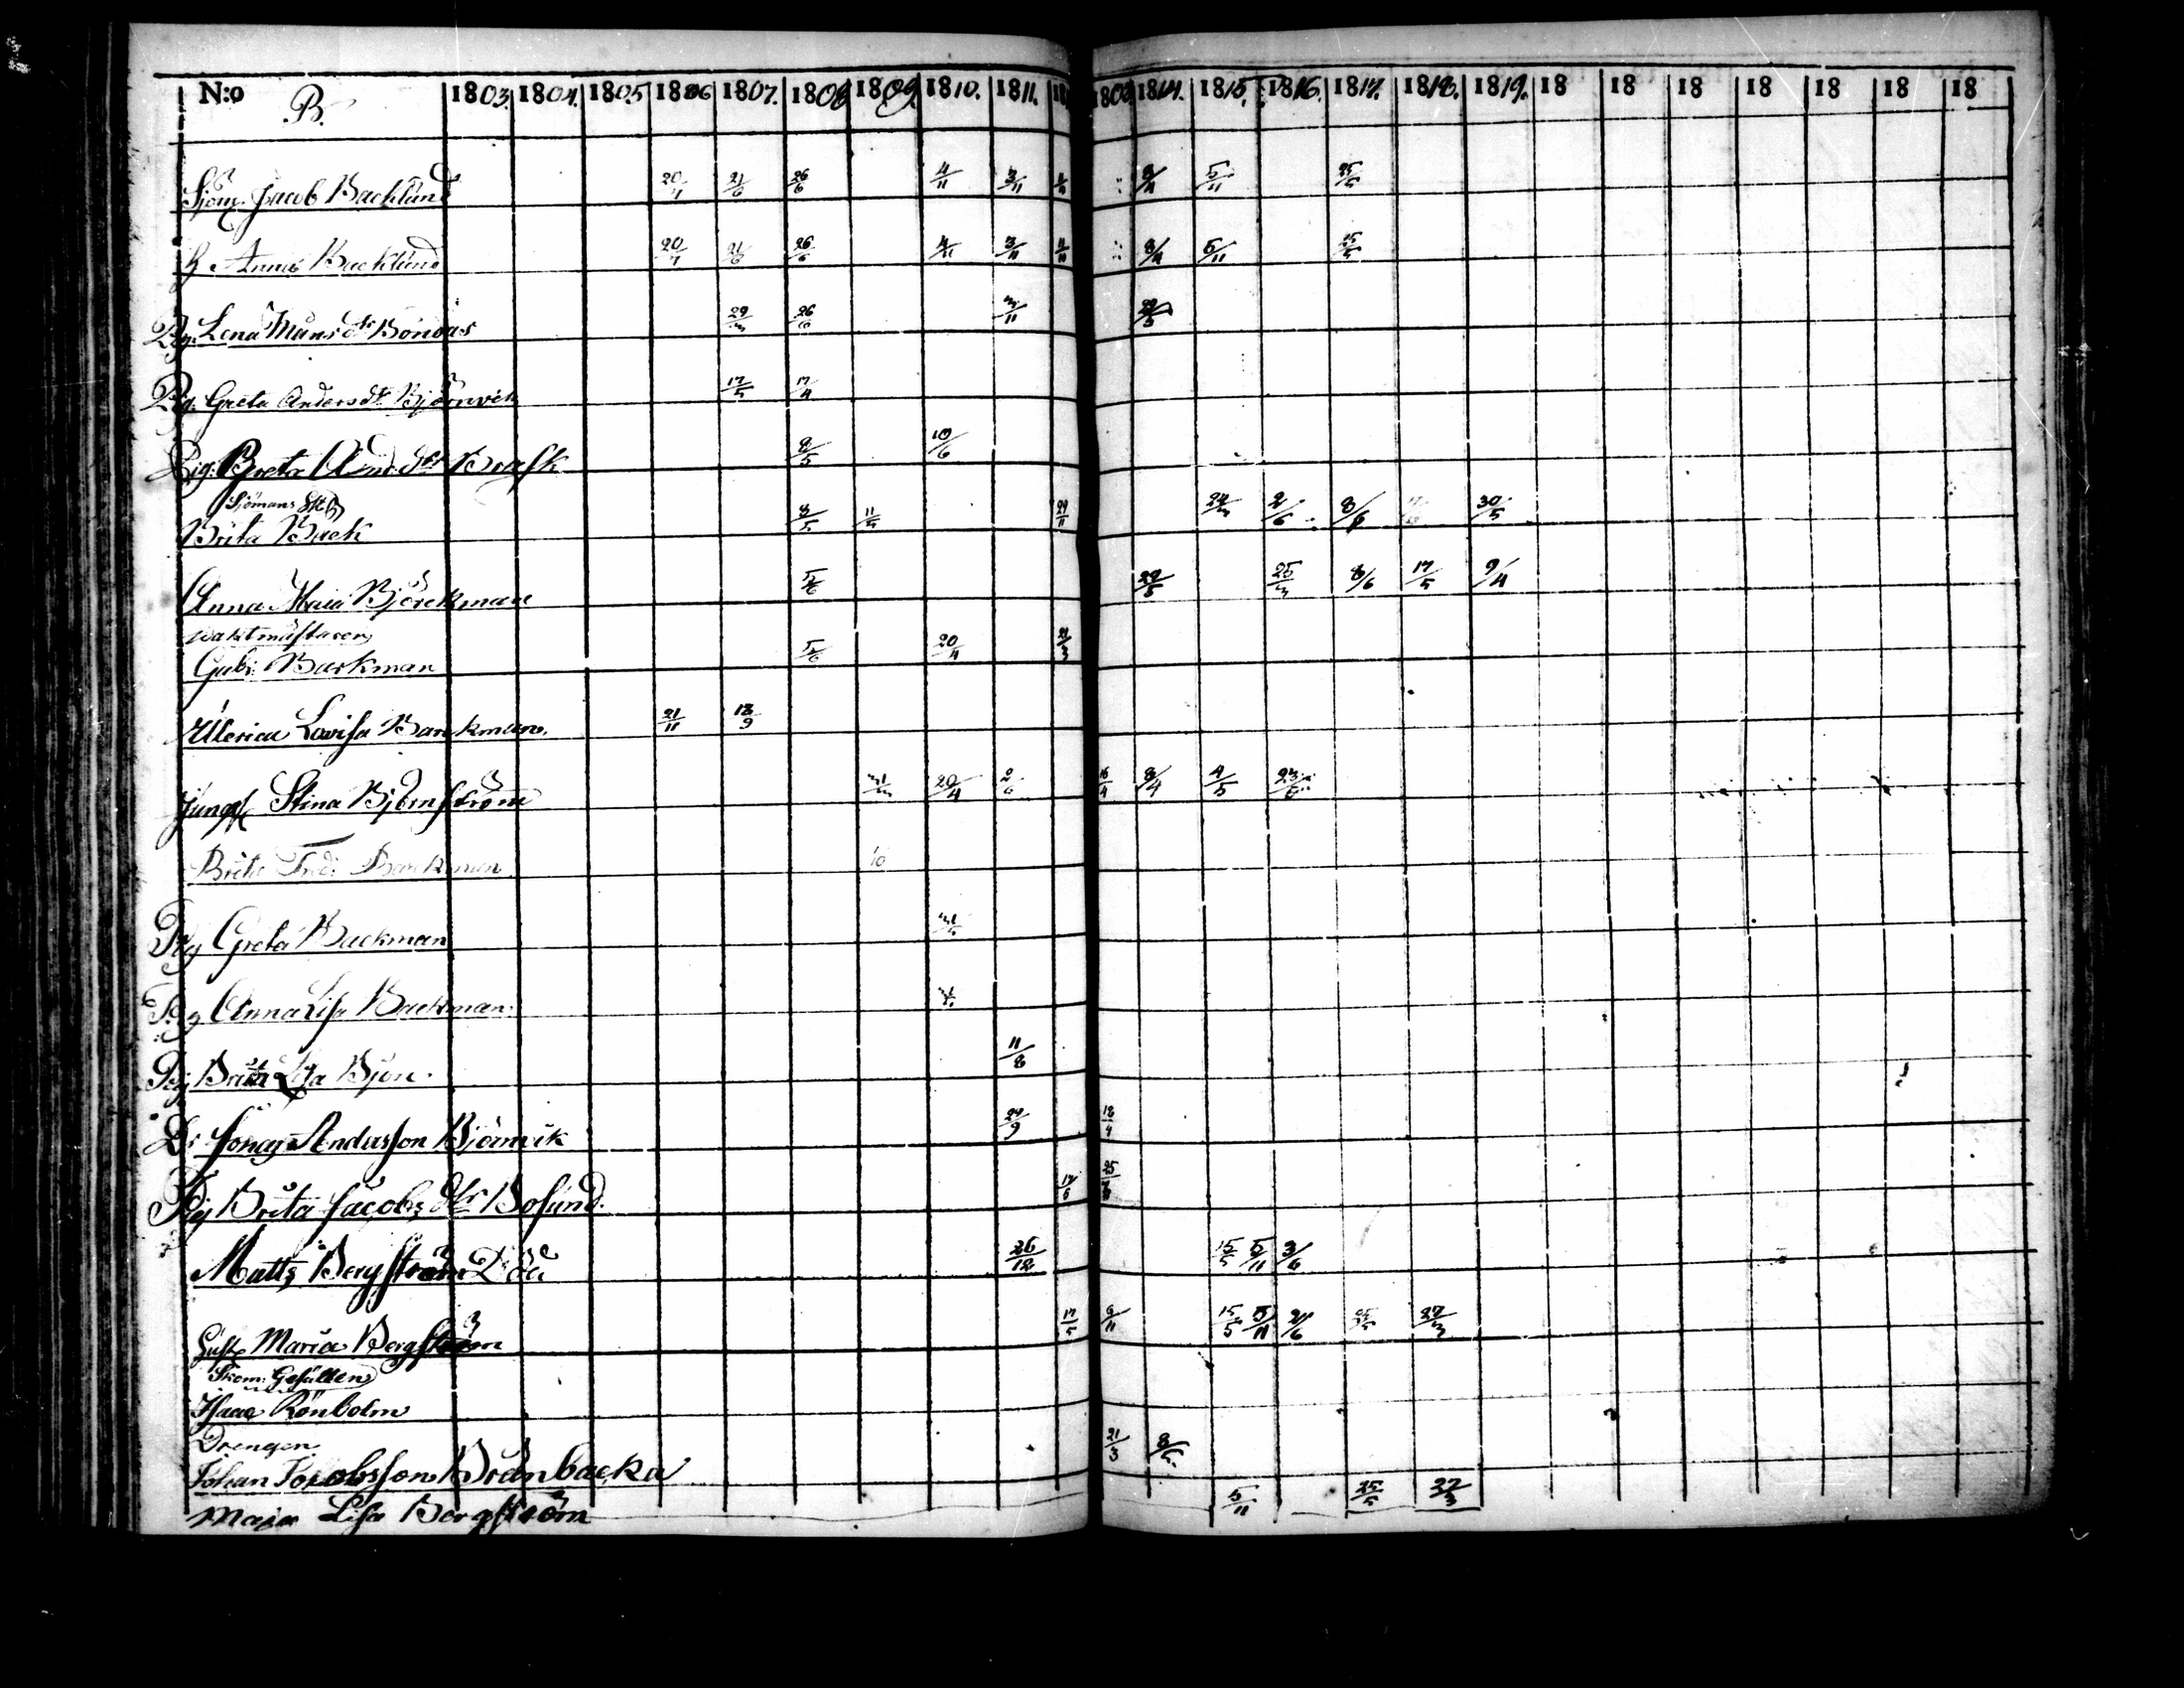 N:o B. 1803. 1804. 1805 1806 1807. 1808 1809. 1810. 1811. 18 1803 1814. 1815. 1816. 1817. 1818. 1819. 18 18 18 18 18 18 18
Sjöm. Jacob Backlund 20/7 21/6 26/6 4/11 3/11 5/11 25/5
H Anna Backlund 20/7 21/6 26/6 4/11 3/11 11/10 3/4 5/11 25/5
Pig. Lena Mansdr Bondas 29/3 26/6 3/11 29/5
Pig. Greta Andersdr Björnvik 17/5 17/4
Pig: Greta And:dr Brask 8/5 10/6
Sjömans Enk
Brita Back 8/5 11/5 29/11 24/3 2/6 8/6 30/5
Anna Maia Björckman 5/6 29/5 25/3 8/6 17/5 9/4
waktmästaren
Gabr: Barkman 5/6 20/4 21/3
Ulerica Lovisa Barckman. 21/11 18/9
Jungf Stina Björnström 20/4 2/6 16/4 8/4 4/5 23/6
Brita Fred: Barckman
Pig Greta Backman
Pig Anna Lisa Backman.
Pig Brita Lisa Björn. 11/8
Dr Jonas Andersson Björnvik 29/9 18/4
Pig Brita Jacobs dtr Bosund. 17/6
Matts Bergström Död 26/12 15/5 5/11 3/6
Gust Maria Bergström 17/5 6/11 15/5 5/11 2/6 25/5 27/3
Skom: Gesällen
Isaac Rönholm
Drengen
Johan Jacobsson Brännbacka 21/3 8/5
Maja Lisa Bergström 5/11 25/5 27/3